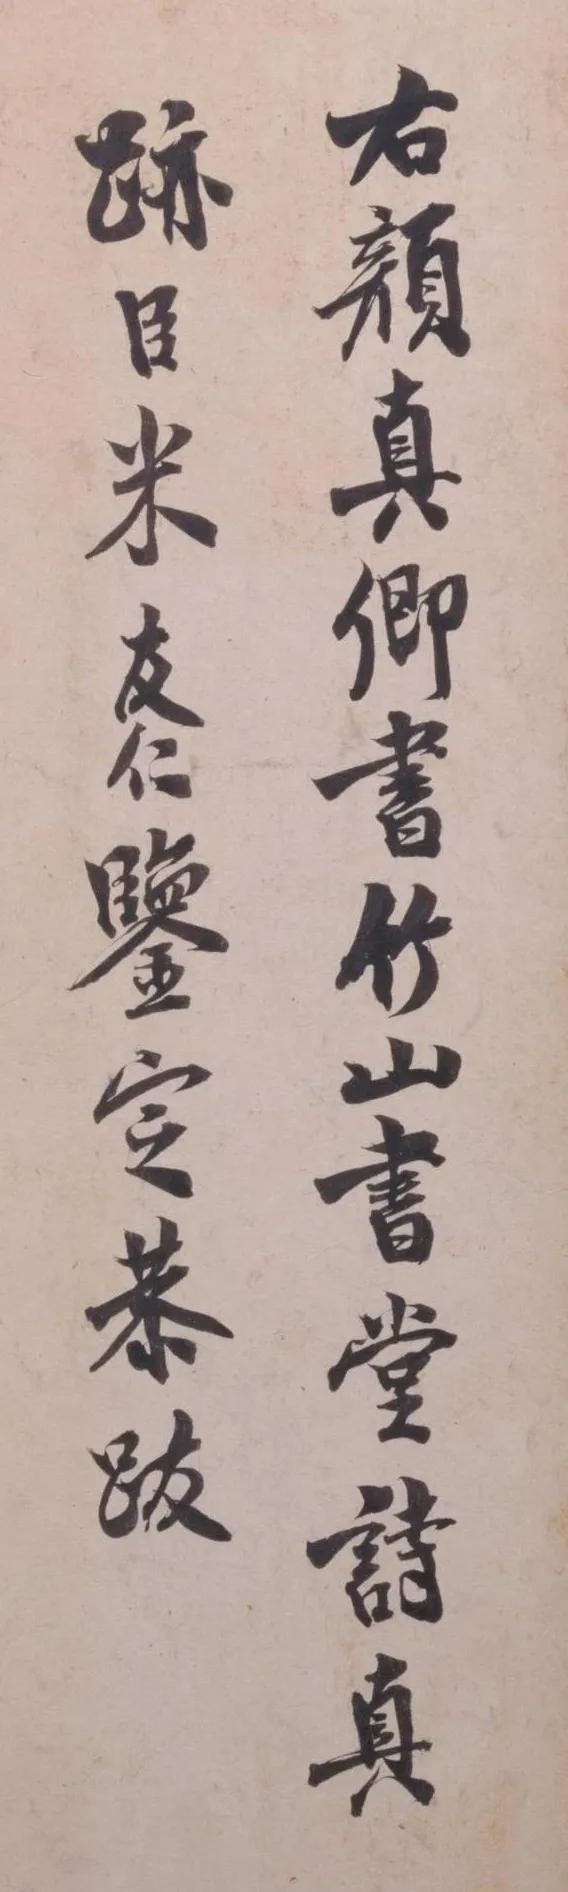 右顏真卿書竹山書堂詩真
跡臣米友仁鑒定恭跋